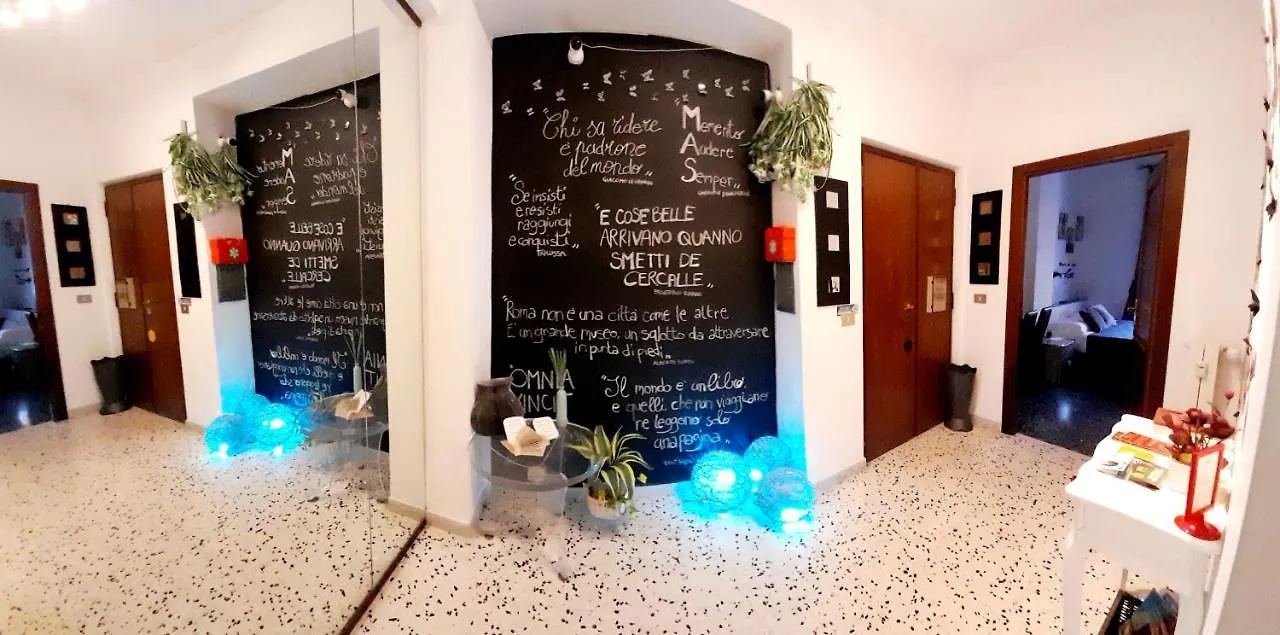 "Chi sa ridere
è padrone
del mondo"
GIACOMO LEOPARDI
"Memento
Audere
Semper"
"Se insisti
e resisti
raggiungi
e conquisti"
TRILUSSA
"E COSE BELLE
ARRIVANO QUANNO
SMETTI DE
CERCALLE"
PROVERBIO ROMANO
"Roma non è una città come le altre.
È un grande museo, un salotto da attraversare
in punta di piedi"
ALBERTO SORDI
"OMNIA
VINCI
"Il mondo è un libro
e quelli che non viaggiano
ne leggono solo
una pagina"